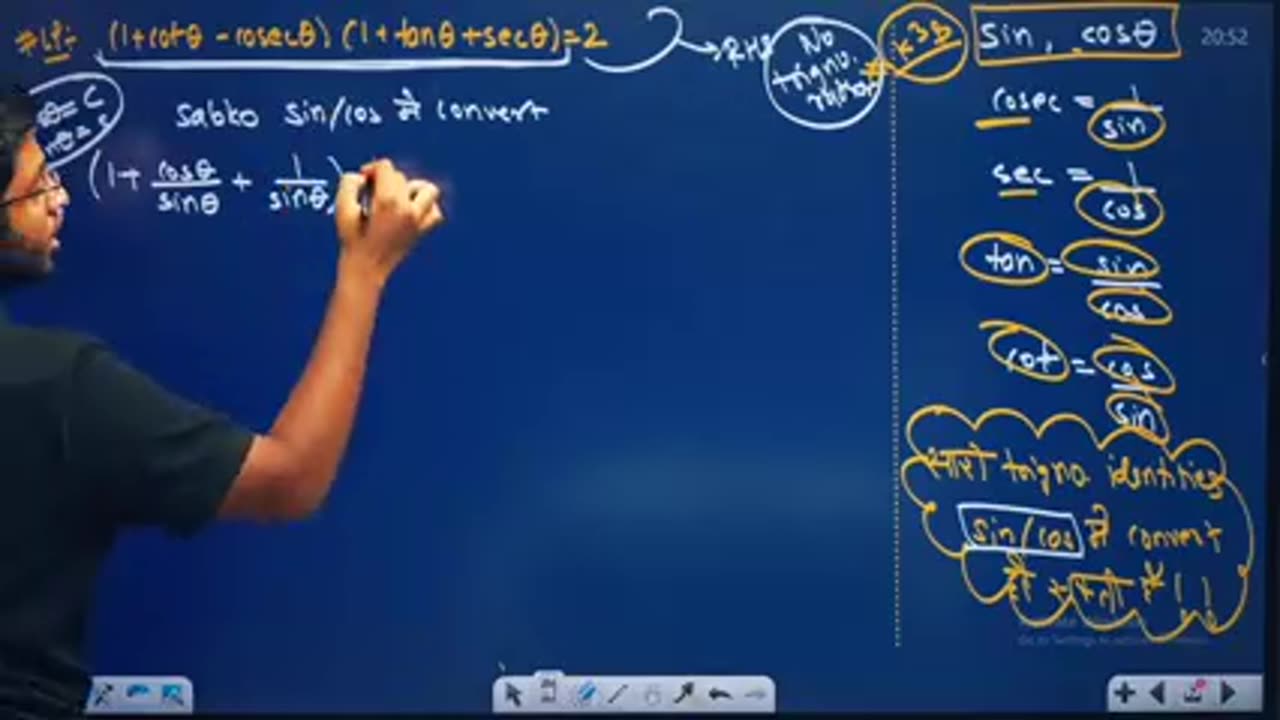 (1+cotθ - cosecθ) (1+tanθ+secθ)=2
→RHS
No
trigno.
sin, cosθ
20:52
Sabko sin/cos में convert
(1+ cosθ/sinθ + 1/sinθ)
cosec = 1/sin
sec = 1/cos
tan = sin/cos
cot = cos/sin
सारी trigno. identities
sin/cos में convert